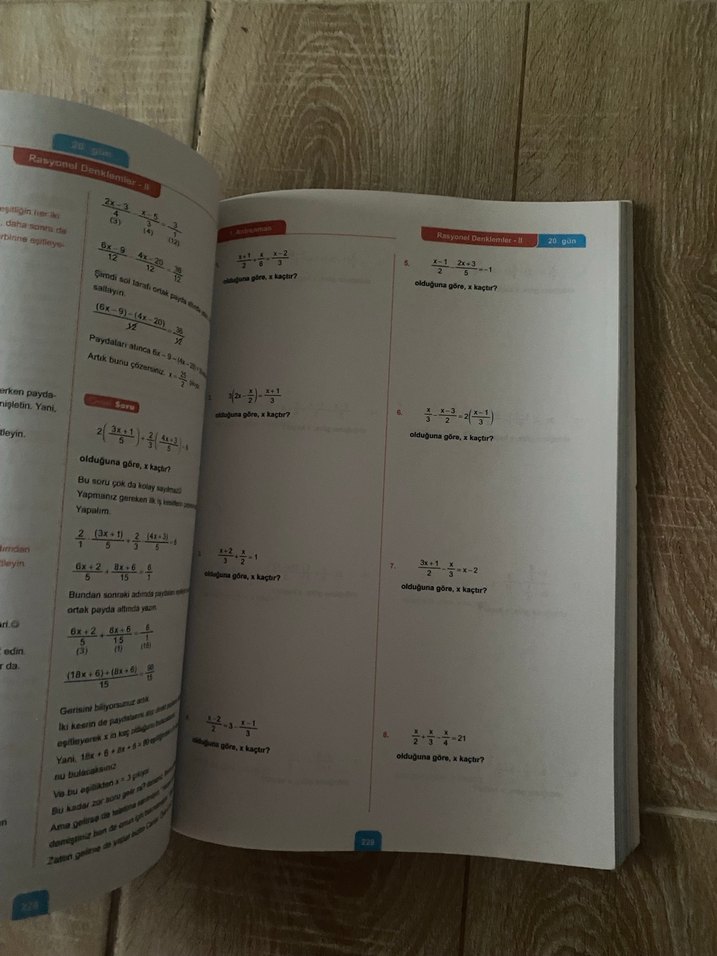 20. gün
Rasyonel Denklemler - II
eşitliğin her iki
, daha sonra da
erken payda-
nişletin. Yani,
tleyin.
tleyin.
edin.
r da.
2x-3/4 - x-5/3 = 3/1
(3) (4) (12)
6x-9/12 - 4x-20/12 = 36/12
Şimdi sol tarafı ortak payda altında
sallayın.
(6x-9)-(4x-20)/12 = 36/12
Paydaları atınca 6x-9-(4x-20)
Artık bunu çözersiniz. x = 25/2
Soru
2(3x+1/5) + 2/3(4x+3/5) = 6
olduğuna göre, x kaçtır?
Bu soru çok da kolay sayılmaz
Yapmanız gereken ilk iş
Yapalım.
2/1 · (3x+1)/5 + 2/3 · (4x+3)/5 = 6
6x+2/5 + 8x+6/15 = 6/1
Bundan sonraki adımda paydaları
ortak payda altında yazın.
6x+2/5 + 8x+6/15 = 6/1
(3) (1) (15)
(18x+6)+(8x+6)/15 = 90/15
Gerisini biliyorsunuz artık.
İki kesrin de paydalarını
eşitleyerek x in kaç olduğunu
Yani, 18x + 6 + 8x + 6 = 90
nu bulacaksınız
Ve bu eşitlikten x = 3 çıkıyor.
Bu kadar zor soru gelir mi?
Ama gelirse de
demiştiniz ben de onun için
Zaten gelirse de
228
1. Antrenman
Rasyonel Denklemler - II 20. gün
x+1/2 + x/6 = x-2/3
olduğuna göre, x kaçtır?
3(2x - x/2) = x+1/3
olduğuna göre, x kaçtır?
x+2/3 + x/2 = 1
olduğuna göre, x kaçtır?
x-2/2 = 3 - x-1/3
olduğuna göre, x kaçtır?
5. x-1/2 - 2x+3/5 = -1
olduğuna göre, x kaçtır?
6. x/3 - x-3/2 = 2(x-1/3)
olduğuna göre, x kaçtır?
7. 3x+1/2 - x/3 = x-2
olduğuna göre, x kaçtır?
8. x/2 + x/3 - x/4 = 21
olduğuna göre, x kaçtır?
229